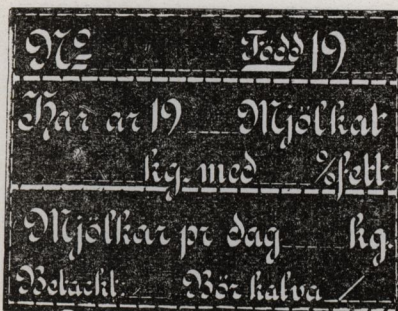 No Född 19
Har år 19 Mjölkat
kg. med % fett
Mjölkar pr dag kg.
Betäckt: Bör kalva /